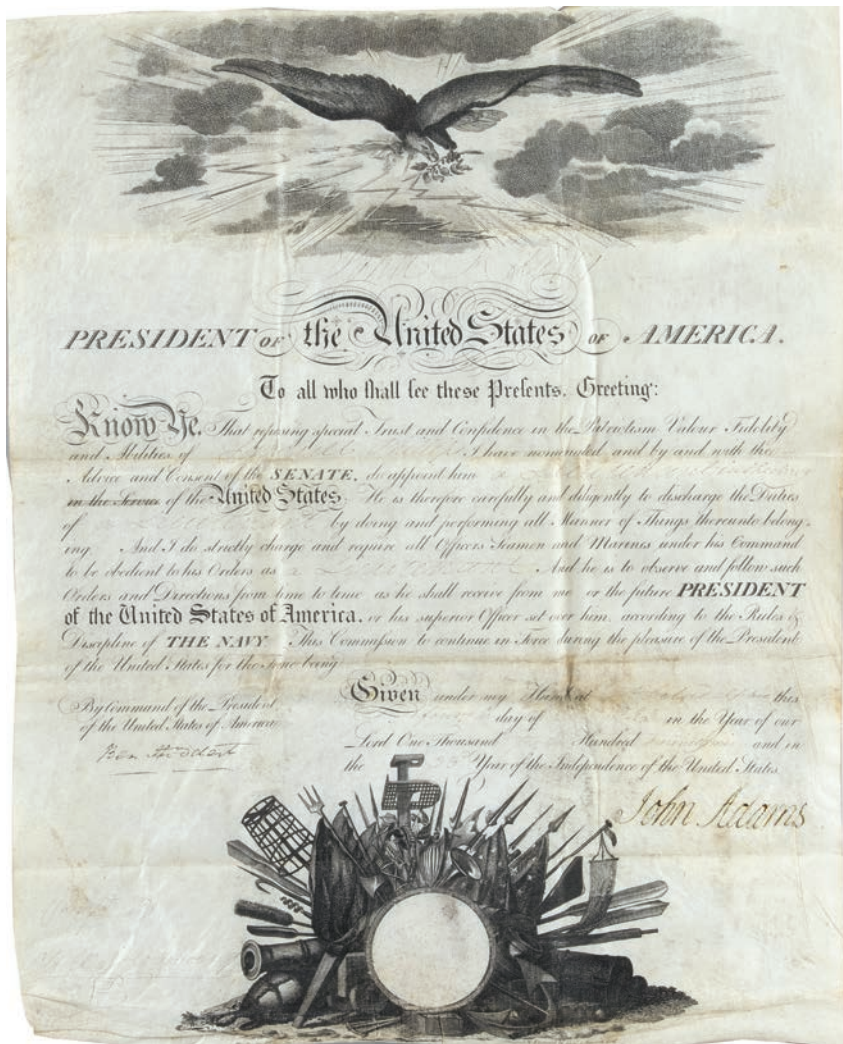 PRESIDENT OF the United States OF AMERICA.
To all who shall see these Presents, Greeting:
Know Ye, That reposing special Trust and Confidence in the Patriotism Valour Fidelity
and Abilities of I have nominated, and by and with the
Advice and Consent of the SENATE, do appoint him a
in the Service of the United States. He is therefore carefully and diligently to discharge the Duties
of a Lieutenant by doing and performing all Manner of Things thereunto belong-
ing. And I do strictly charge and require all Officers Seamen and Marines under his Command
to be obedient to his Orders as a Lieutenant And he is to observe and follow such
Orders and Directions from time to time as he shall receive from me or the future PRESIDENT
of the United States of America, or his superior Officer set over him, according to the Rules &
Discipline of THE NAVY This Commission to continue in Force during the pleasure of the President
of the United States for the time being
By Command of the President
of the United States of America
Ben Stoddert
Given under my Hand at this
day of in the Year of our
Lord One Thousand Hundred and in
the 23 Year of the Independence of the United States
John Adams